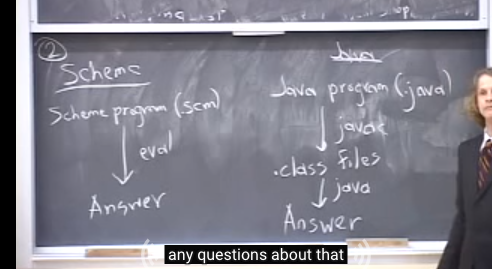 ②
Scheme
Scheme program (.scm)
eval
Answer
Java
Java program (.java)
javac
.class files
java
Answer
any questions about that